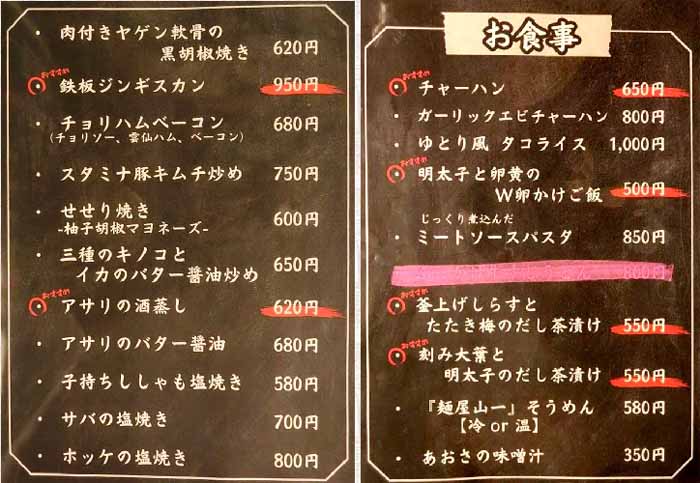 ・ 肉付きヤゲン軟骨の
黒胡椒焼き 620円
おすすめ
鉄板ジンギスカン 950円
・ チョリハムベーコン 680円
(チョリソー、雲仙ハム、ベーコン)
・ スタミナ豚キムチ炒め 750円
・ せせり焼き 600円
-柚子胡椒マヨネーズ-
・ 三種のキノコと
イカのバター醤油炒め 650円
おすすめ
アサリの酒蒸し 620円
・ アサリのバター醤油 680円
・ 子持ちししゃも塩焼き 580円
・ サバの塩焼き 700円
・ ホッケの塩焼き 800円
お食事
おすすめ
チャーハン 650円
・ ガーリックエビチャーハン 800円
・ ゆとり風 タコライス 1,000円
おすすめ
明太子と卵黄の
W卵かけご飯 500円
じっくり煮込んだ
・ ミートソースパスタ 850円
800円
おすすめ
釜上げしらすと
たたき梅のだし茶漬け 550円
おすすめ
刻み大葉と
明太子のだし茶漬け 550円
・ 『麺屋山一』そうめん 580円
【冷 or 温】
・ あおさの味噌汁 350円